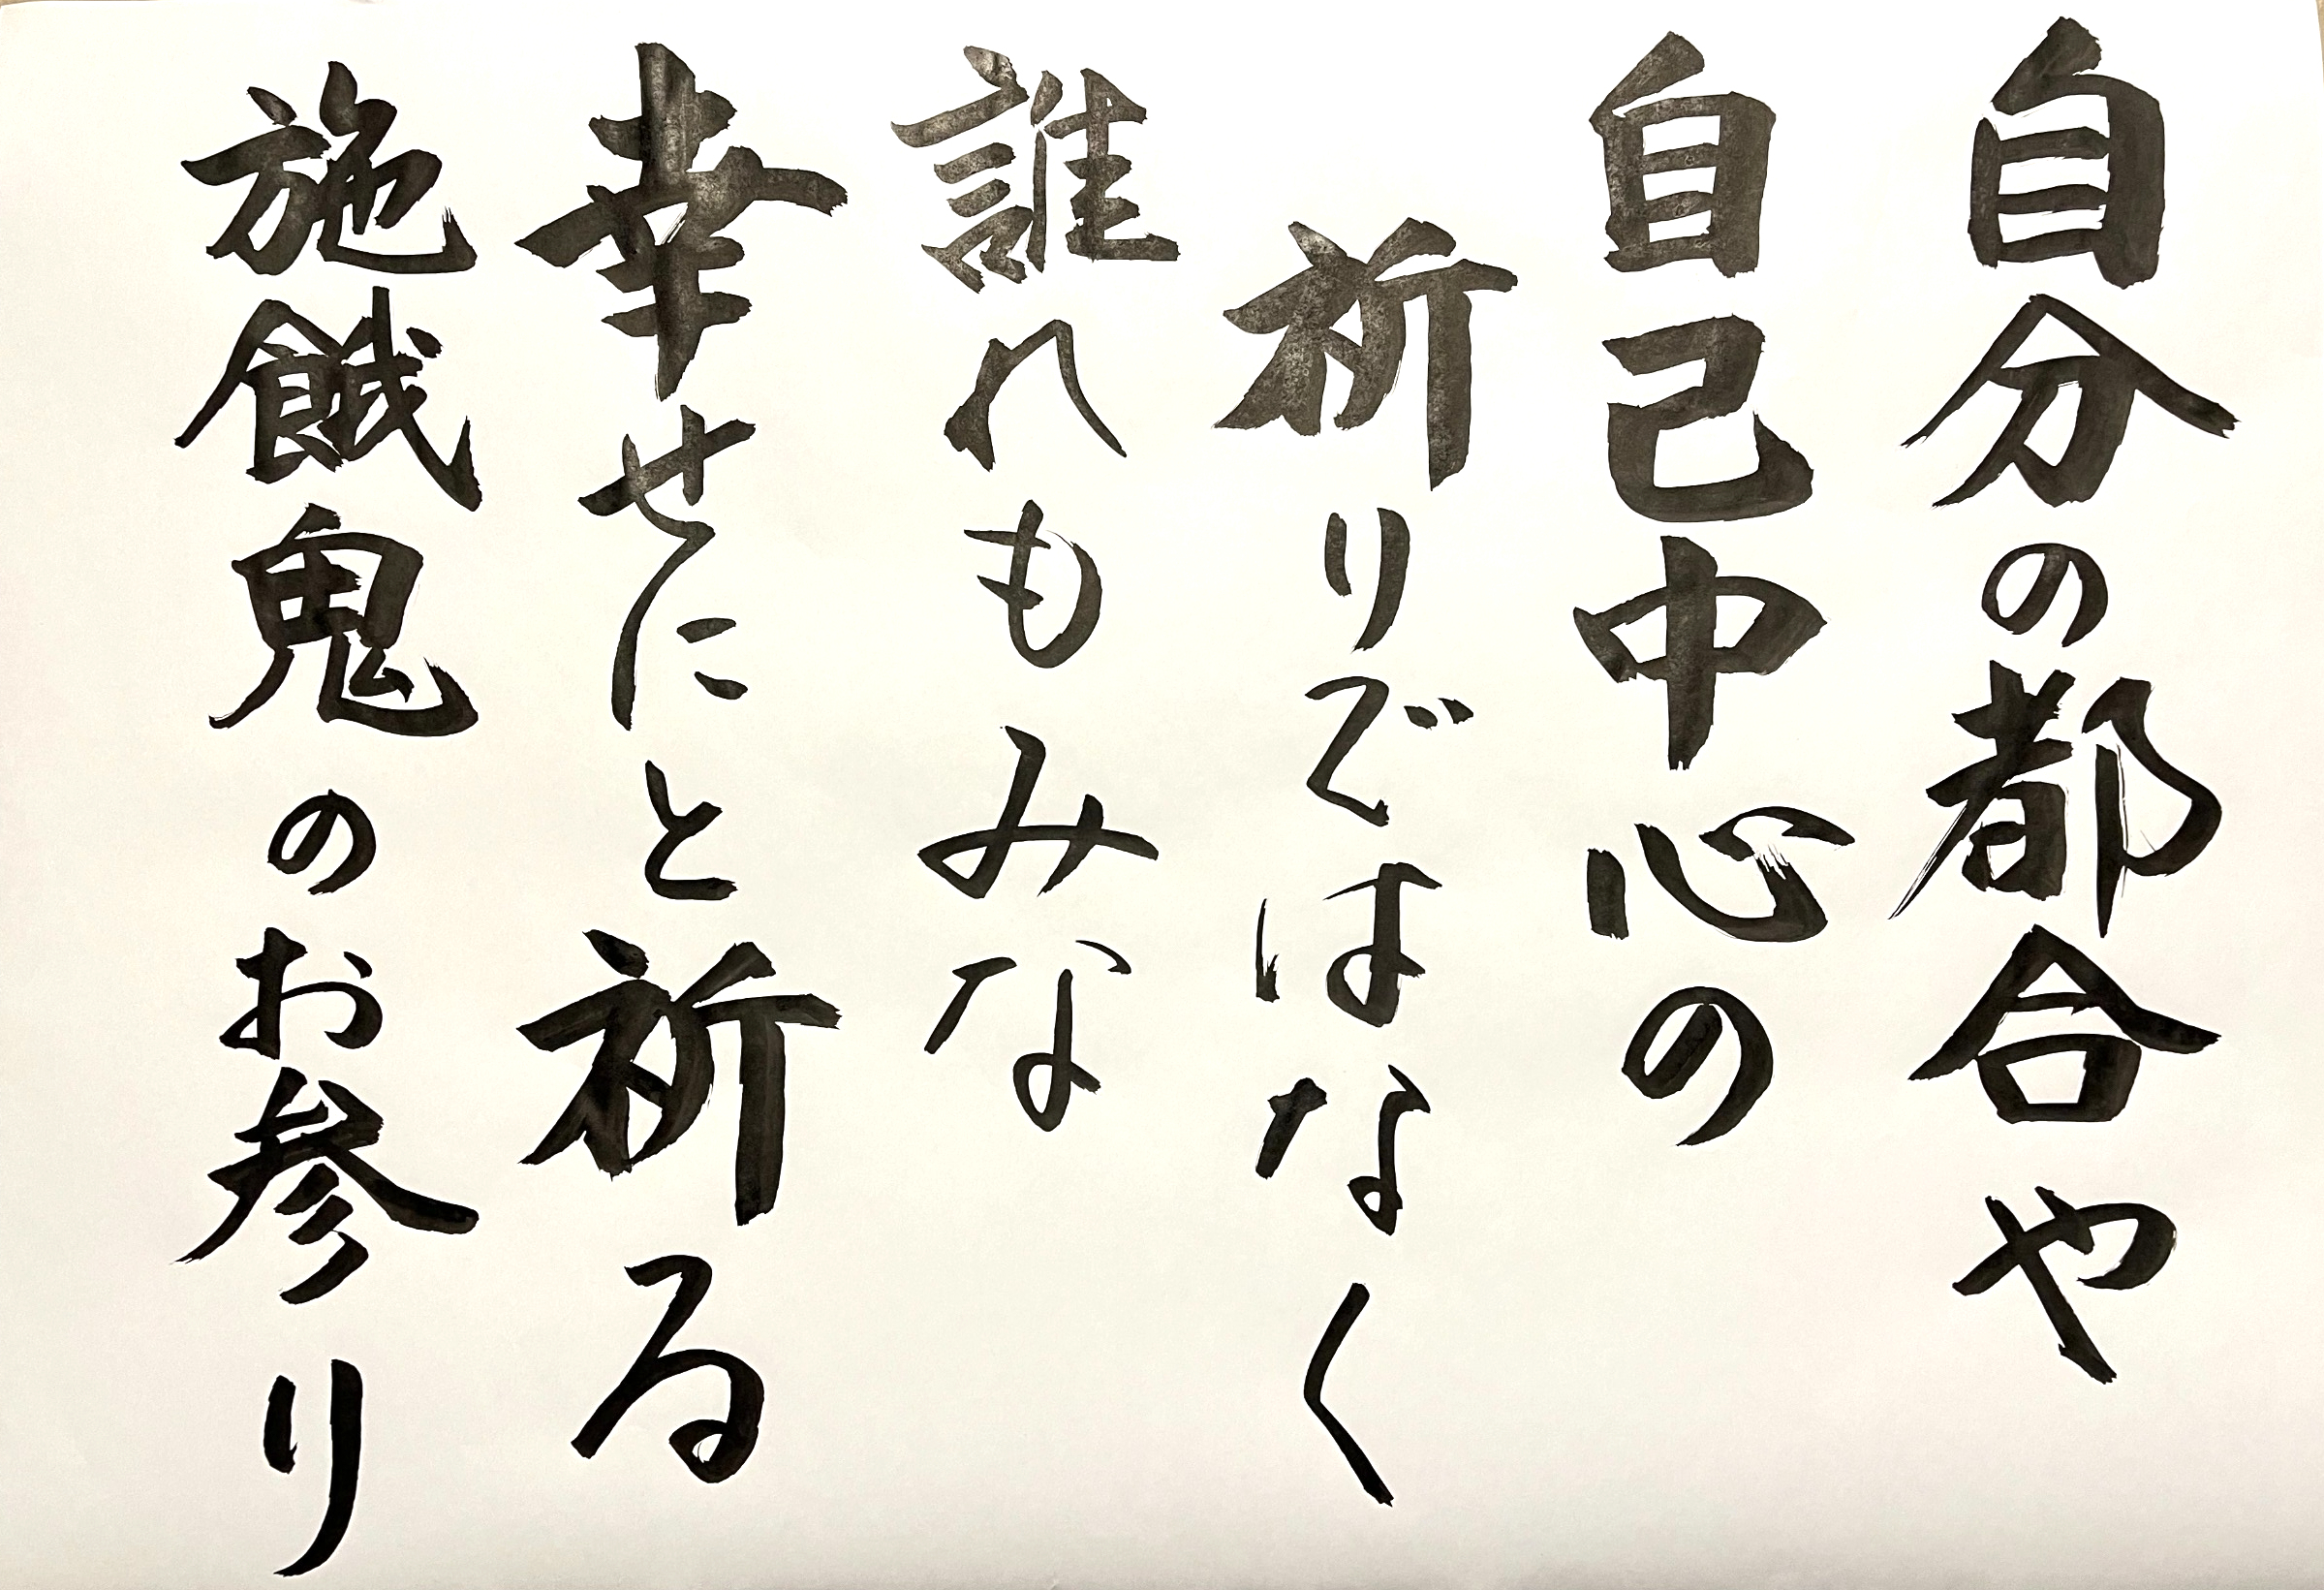 自分の都合や
自己中心の
祈りではなく
誰れもみな
幸せにと祈る
施餓鬼のお参り